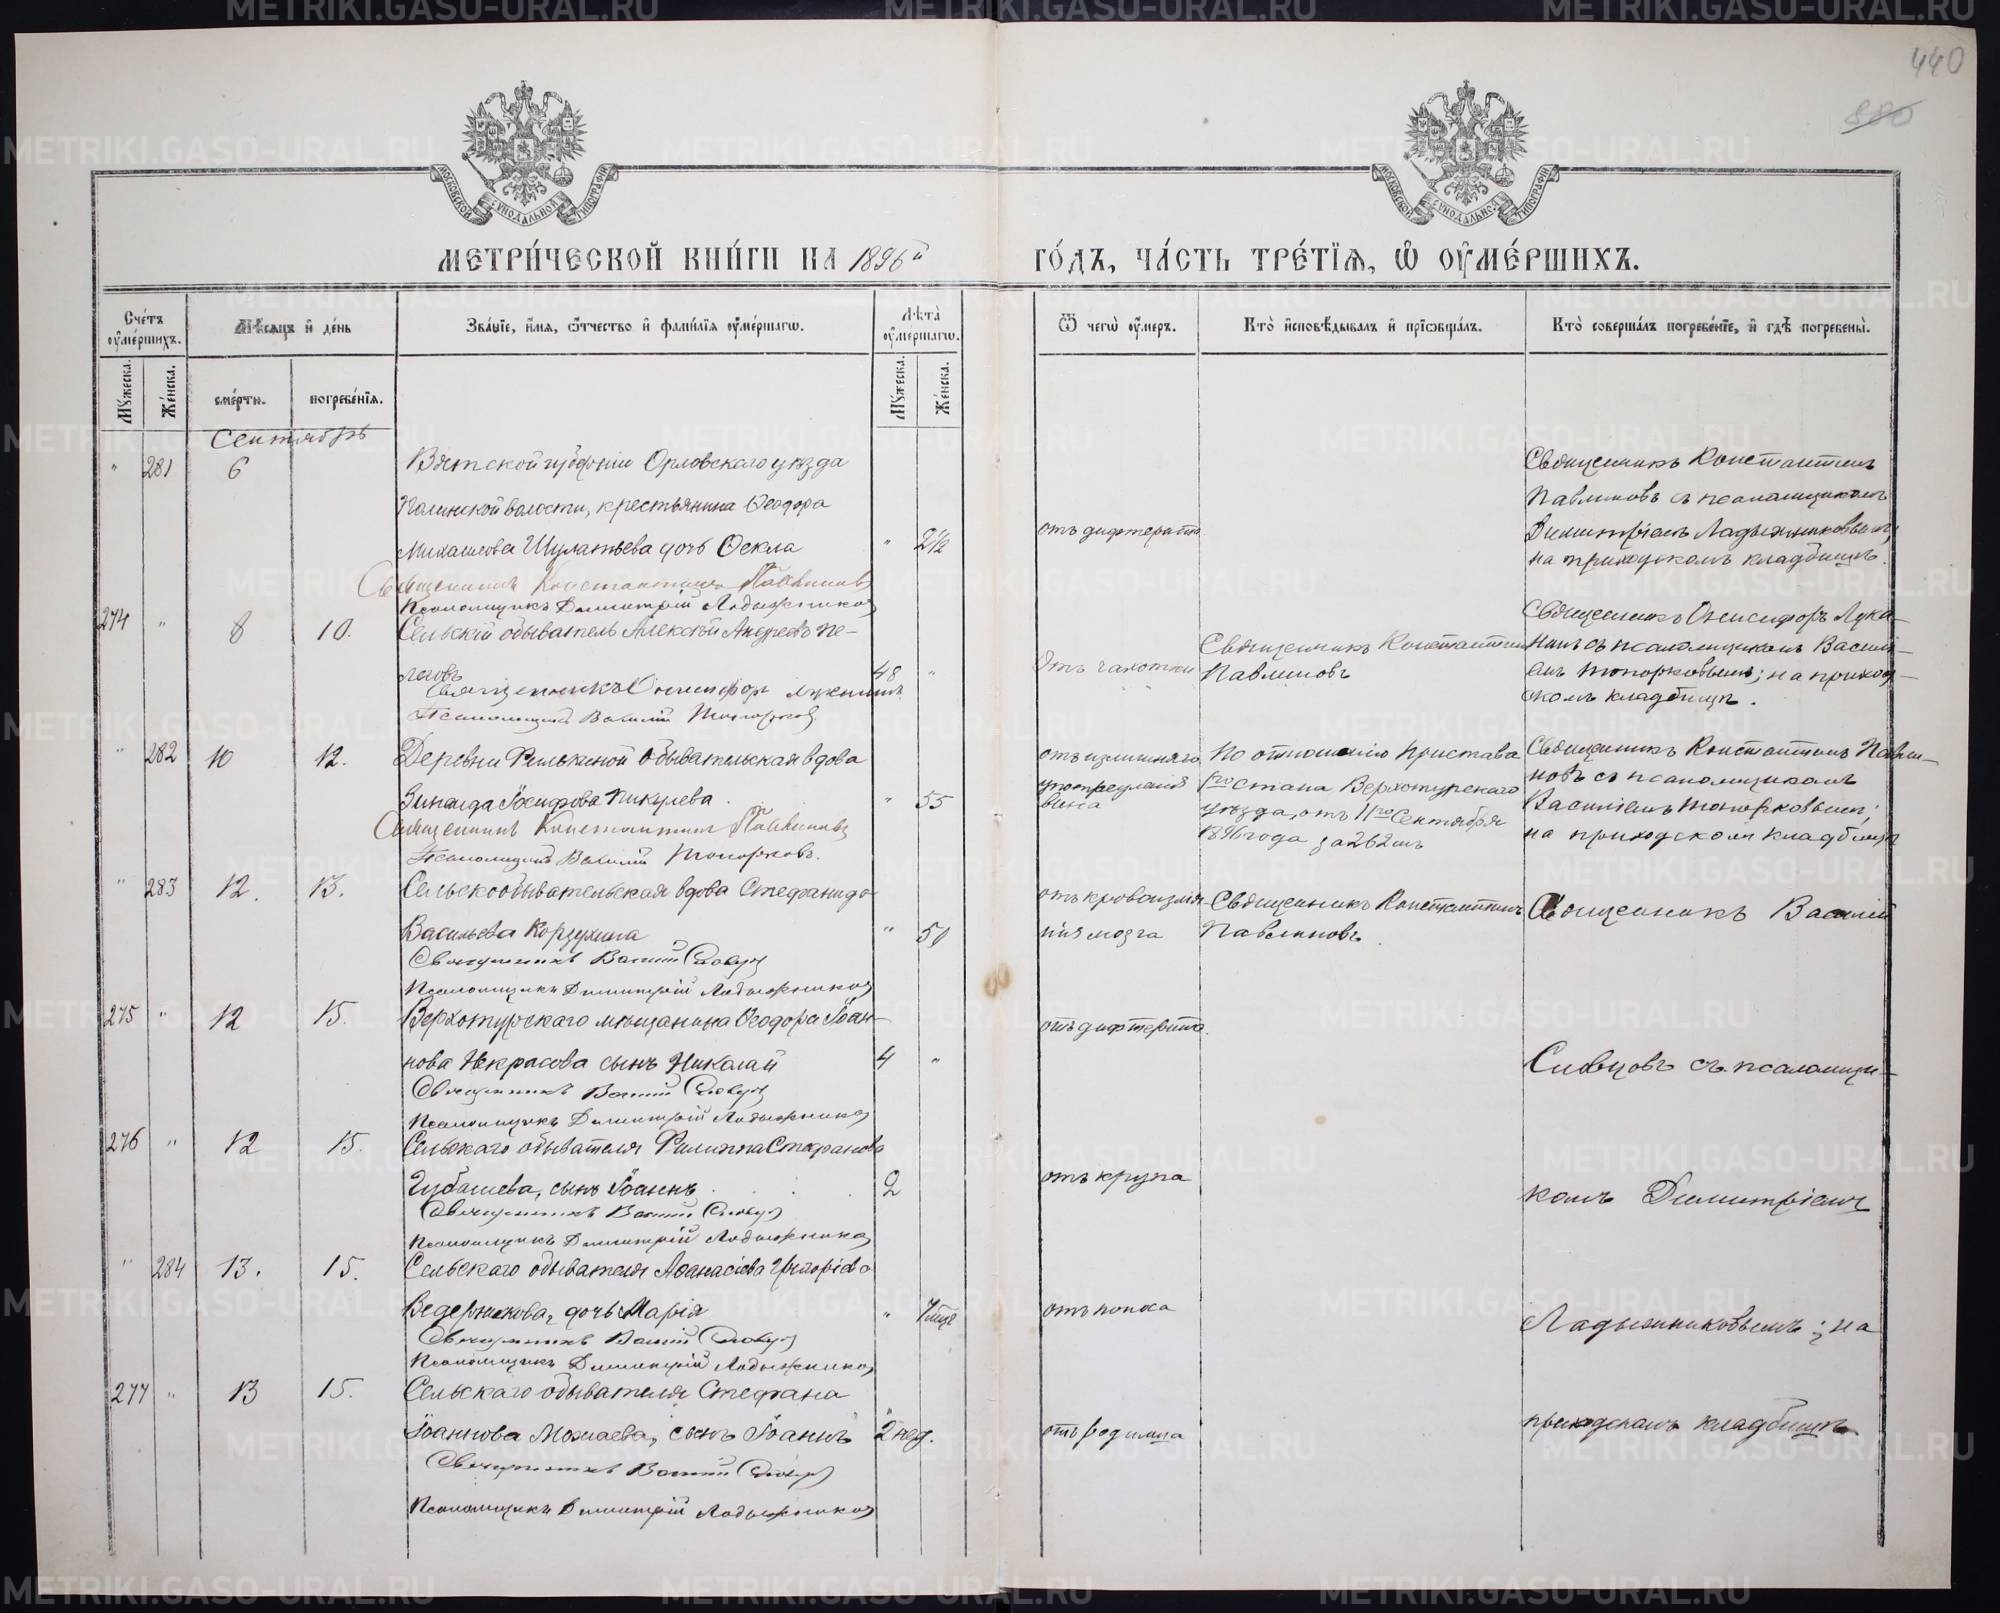 440
880
МОСКОВСКОЙ СѴНОДАЛЬНОЙ ТИПОГРАФІИ
МОСКОВСКОЙ СѴНОДАЛЬНОЙ ТИПОГРАФІИ
МЕТРИ́ЧЕСКОЙ КНИ́ГИ НА 1896й ГО́ДЪ, ЧА́СТЬ ТРЕ́ТІЯ, Ѡ҆ ОУ҆МЕ́РШИХЪ.
Сче́тъ оу҆ме́ршихъ.
Мꙋ́жеска.
Же́нска.
Мѣ́сяцъ и҆ де́нь
сме́рти.
погребе́нїя.
Зва́нїе, и҆́мя, ѻ҆́тчество и҆ фами́лїя оу҆ме́ршагѡ.
Лѣ́та оу҆ме́ршагѡ.
Мꙋ́жеска.
Же́нска.
Ѿ чегѡ̀ оу҆́меръ.
Кто̀ и҆сповѣ́дывалъ и҆ прїѻбща́лъ.
Кто̀ соверша́лъ погребе́нїе, и҆ гдѣ̀ погребены̀.
Сентябрь
" 281 6
Вятской губерніи Орловскаго уѣзда
волости, крестьянина Ѳеодора
Михаилова Шулатьева дочь Ѳекла " 2½
отъ дифтерита
Священникъ Константинъ
Павлиновъ съ псаломщикомъ
Димитріемъ Ладыжниковымъ;
на приходскомъ кладбищѣ.
Священникъ Константинъ Павлиновъ
Псаломщикъ Димитрій Ладыжниковъ
274 " 8 10.
Сельскій обыватель Алексѣй Андреевъ Пе-
леговъ 48 "
Отъ чахотки
Священникъ Константинъ
Павлиновъ
Священникъ Онисифоръ Лука-
нинъ съ псаломщикомъ Васили-
емъ Топорковымъ; на приход-
скомъ кладбищѣ.
Священникъ Онисифоръ Луканинъ
Псаломщикъ Василій Топорковъ
" 282 10 12.
Деревни обывательская вдова
Зинаида Іосифова Пикулева " 55
отъ излишняго
употребленія
вина
По отношенію Пристава
1го стана Верхотурскаго
уѣзда, отъ 11го Сентября
1896 года за 262мъ
Священникъ Константинъ Павли-
новъ съ псаломщикомъ
Василіемъ Топорковымъ;
на приходскомъ кладбищѣ
Священникъ Константинъ Павлиновъ
Псаломщикъ Василій Топорковъ.
" 283 12. 13.
Сельскообывательская вдова Стефанида
Васильева Корзухина " 50
отъ кровоизлія-
нія мозга
Священникъ Константинъ
Павлиновъ
Священникъ Василій
Священникъ Василій Словцовъ
Псаломщикъ Димитрій Ладыжниковъ
275 " 12 15.
Верхотурскаго мѣщанина Ѳеодора Іоан-
нова Некрасова сынъ Николай 4 "
отъ дифтерита.
Словцовъ съ псаломщи-
Священникъ Василій Словцовъ
Псаломщикъ Димитрій Ладыжниковъ
276 " 12 15.
Сельскаго обывателя Филиппа Стефанова
Чубашева, сынъ Іоаннъ 2
отъ крупа
комъ Димитріемъ
Священникъ Василій Словцовъ
Псаломщикъ Димитрій Ладыжниковъ
" 284 13. 15.
Сельскаго обывателя Аѳанасіева Григоріева
Ведерникова, дочь Марія "
отъ поноса
Ладыжниковымъ; на
Священникъ Василій Словцовъ
Псаломщикъ Димитрій Ладыжниковъ
277 " 13 15.
Сельскаго обывателя Стефана
Іоаннова Можаева, сынъ Іоаннъ 2 нед.
отъ родимца
приходскомъ кладбищѣ
Священникъ Василій Словцовъ
Псаломщикъ Димитрій Ладыжниковъ
METRIKI.GASO-URAL.RU